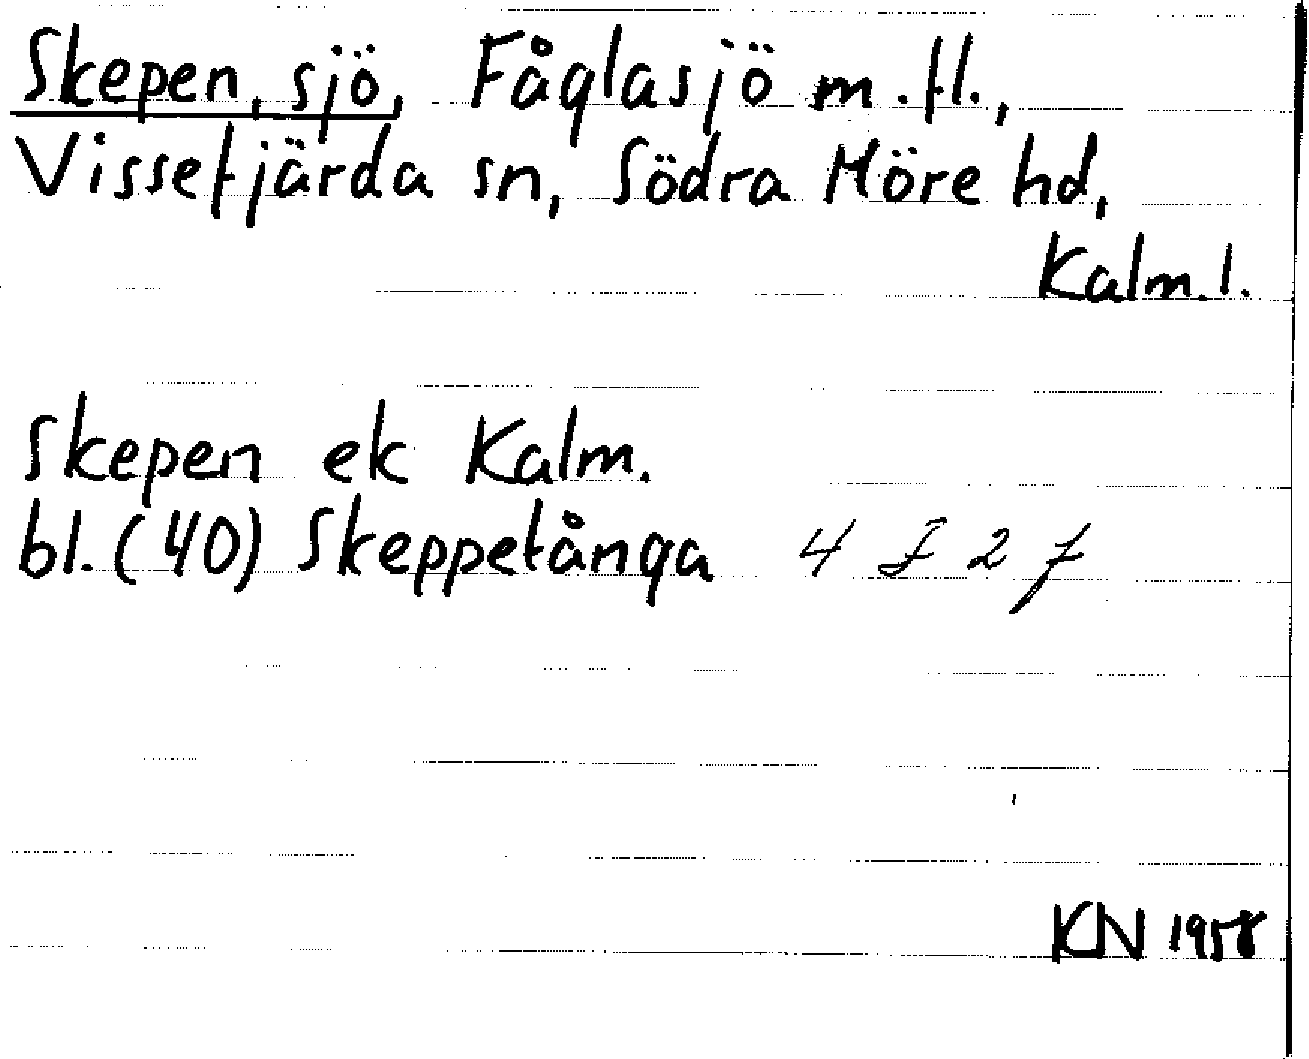 Skepen, sjö, Fåglasjö m.fl.,
Vissefjärda sn, Södra Möre hd,
Kalm.l.
Skepen ek Kalm.
bl.(40) Skeppetånga 4 F 2 f
KN 1958